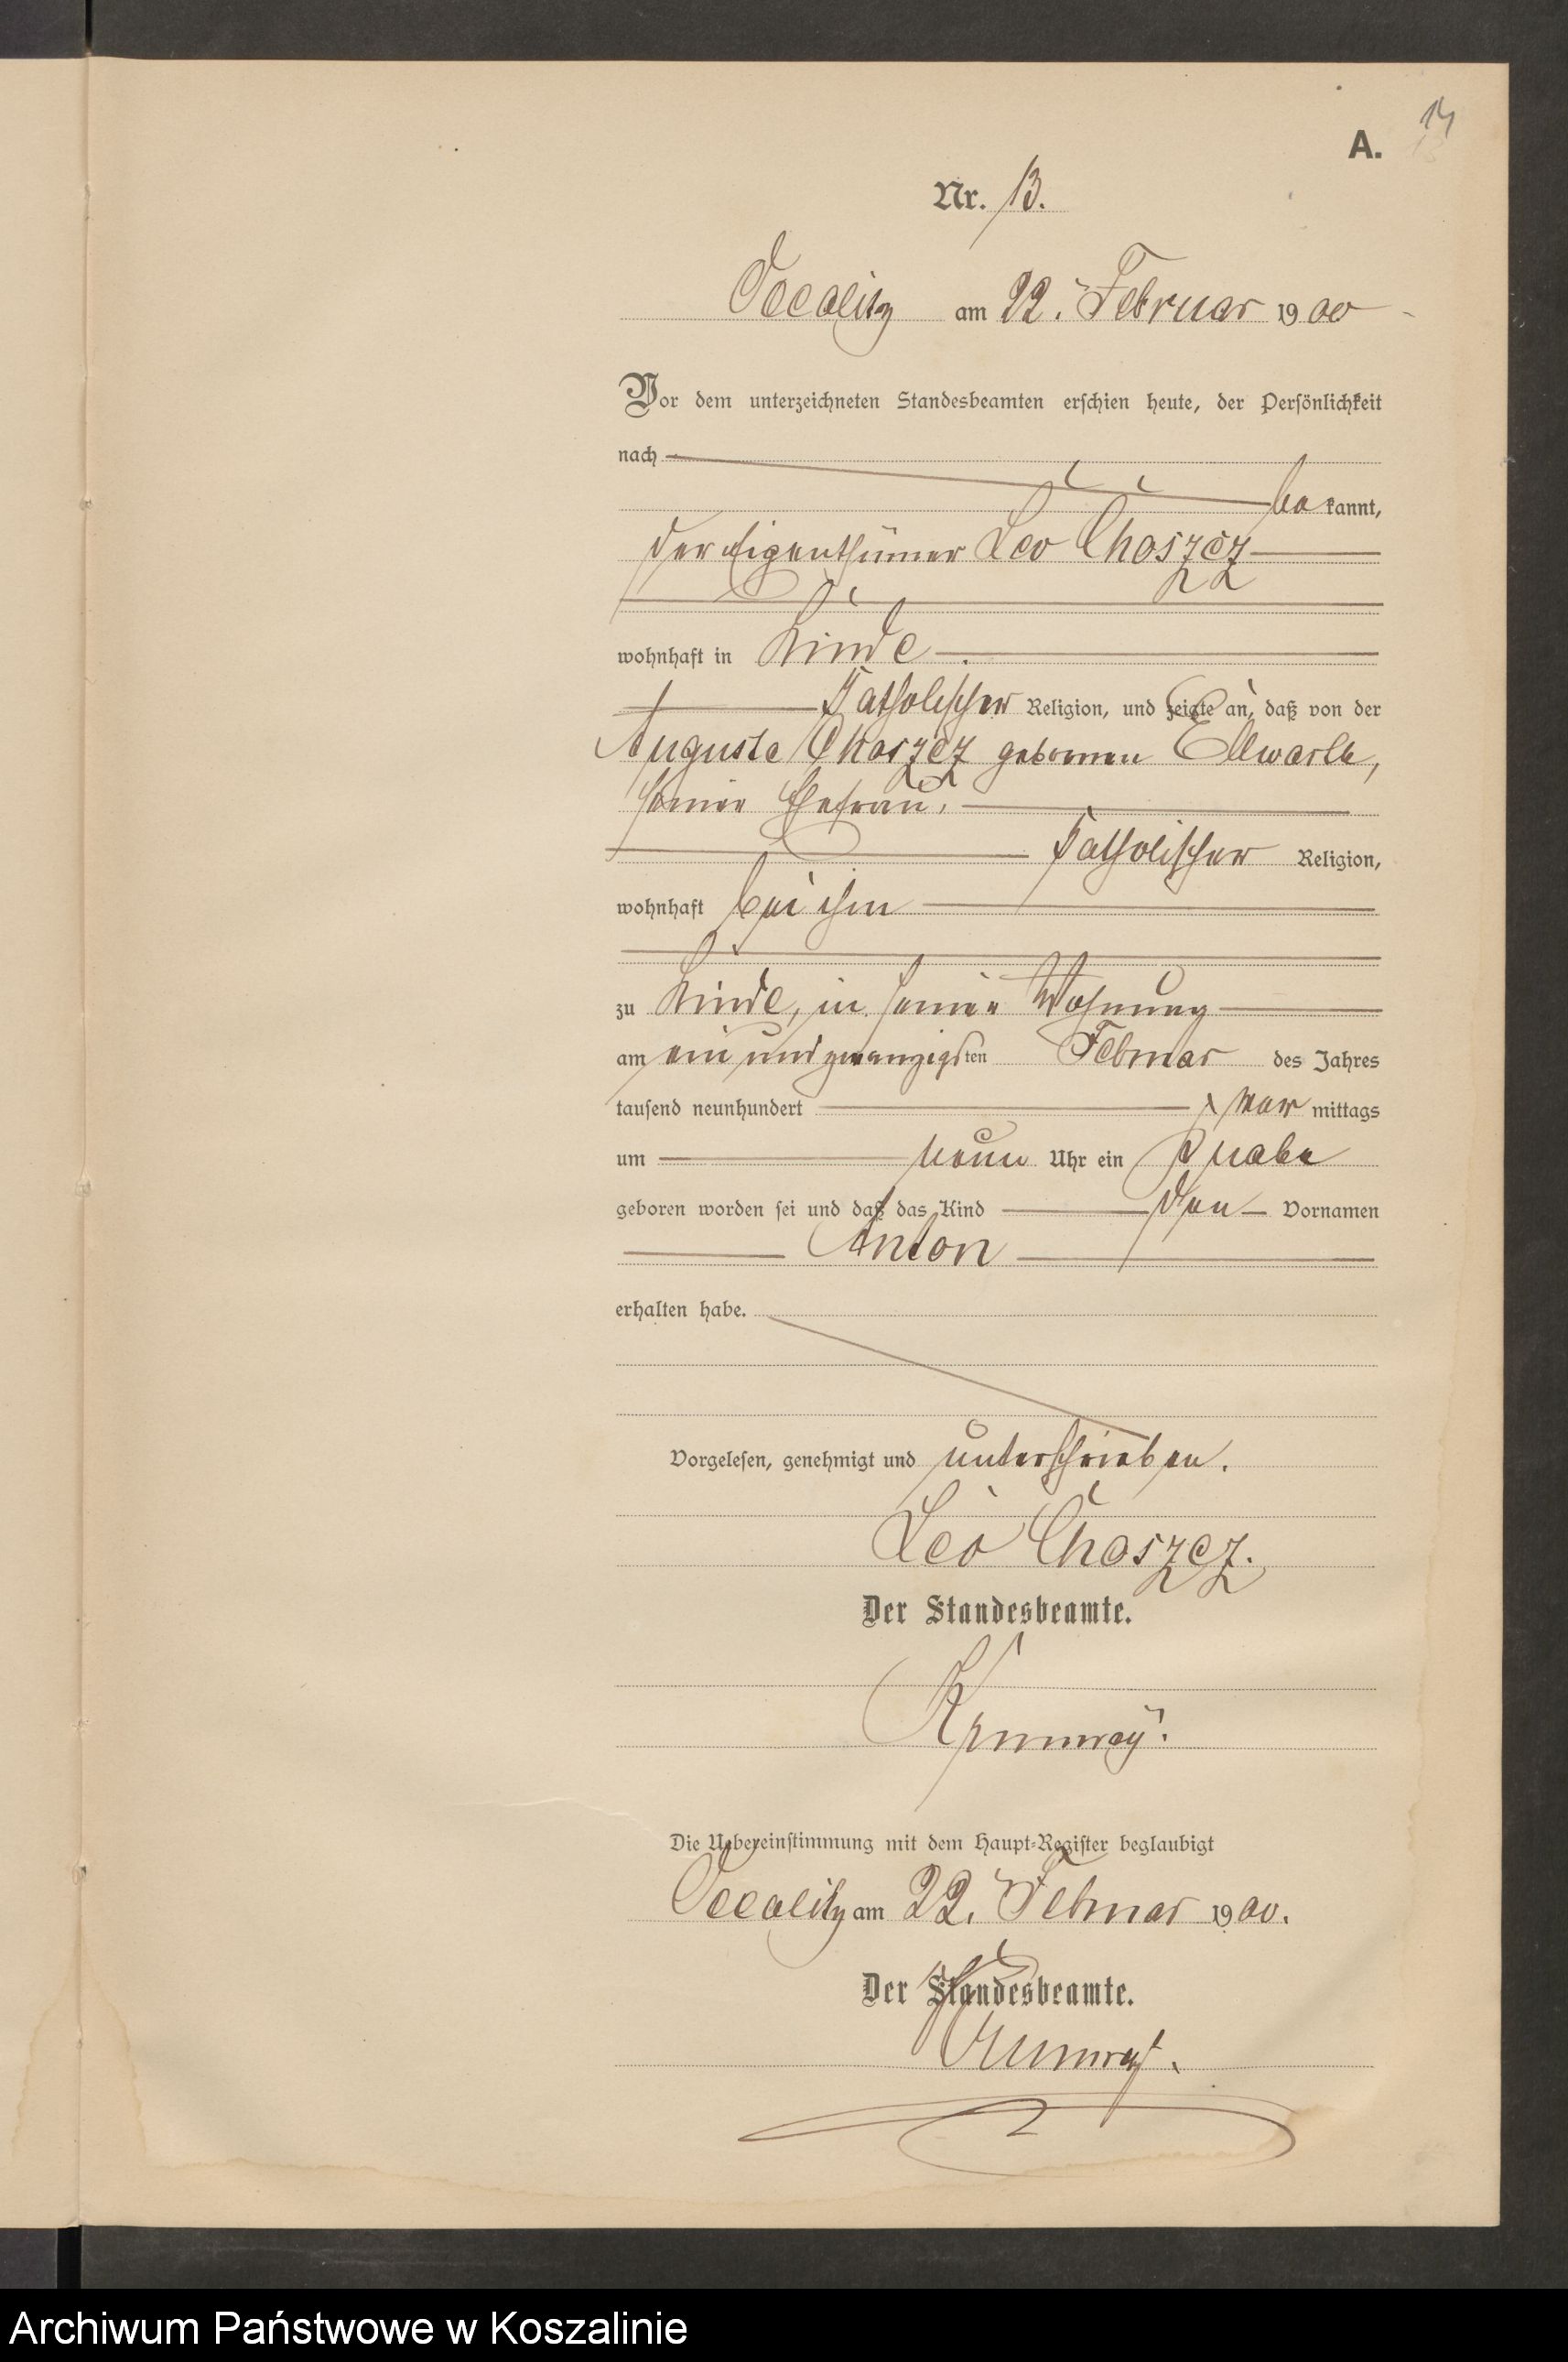 14
A.
Nr. 13.
Occalitz am 22. Februar 1900
Vor dem unterzeichneten Standesbeamten erschien heute, der Persönlichkeit
nach
be kannt,
der Eigenthümer Leo Choszcz
wohnhaft in Linde
katholischer Religion, und zeigte an, daß von der
Auguste Choszcz geborenen
seiner Ehefrau,
katholischer Religion,
wohnhaft bei ihm
zu Linde, in seiner Wohnung
am ein und zwanzigsten Februar des Jahres
tausend neunhundert vor mittags
um neun Uhr ein Knabe
geboren worden sei und daß das Kind den Vornamen
Anton
erhalten habe.
Vorgelesen, genehmigt und unterschrieben.
Leo Choszcz.
Der Standesbeamte.
Die Uebereinstimmung mit dem Haupt-Register beglaubigt
Occalitz am 22. Februar 1900.
Der Standesbeamte.
Archiwum Państwowe w Koszalinie